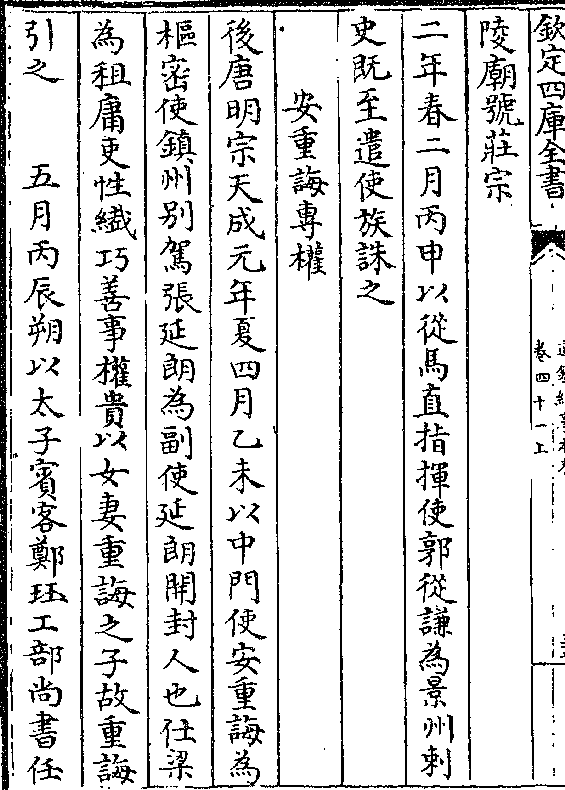 欽定四庫全書
卷四十一上
陵廟號莊宗
二年春二月丙申以從馬直指揮使郭從謙為景州刺
史既至遣使族誅之
安重誨專權
後唐明宗天成元年夏四月乙未以中門使安重誨為
樞密使鎮州别駕張延朗為副使延朗開封人也仕梁
為租庸吏性纖巧善事權貴以女妻重誨之子故重誨
引之　五月丙辰朔以太子賓客鄭珏工部尚書任